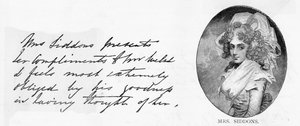 Mrs Siddons presents
her Compliments to Mr
& feels most extremely
obliged by his goodness
in having thought of her.
MRS. SIDDONS.